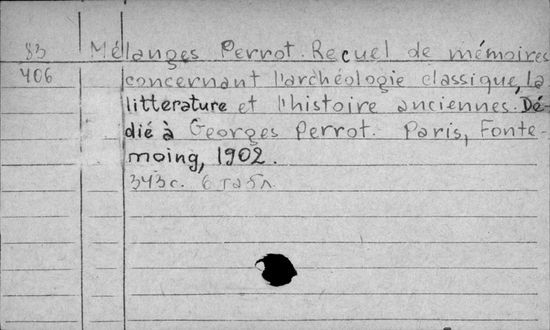 83 Mélanges Perrot. Recuel de mémoires
406 concernant l'archéologie classique, la
litterature et l'histoire anciennes. Dé-
dié à Georges Perrot. Paris, Fonte-
moing, 1902.
343 c. 6 табл.